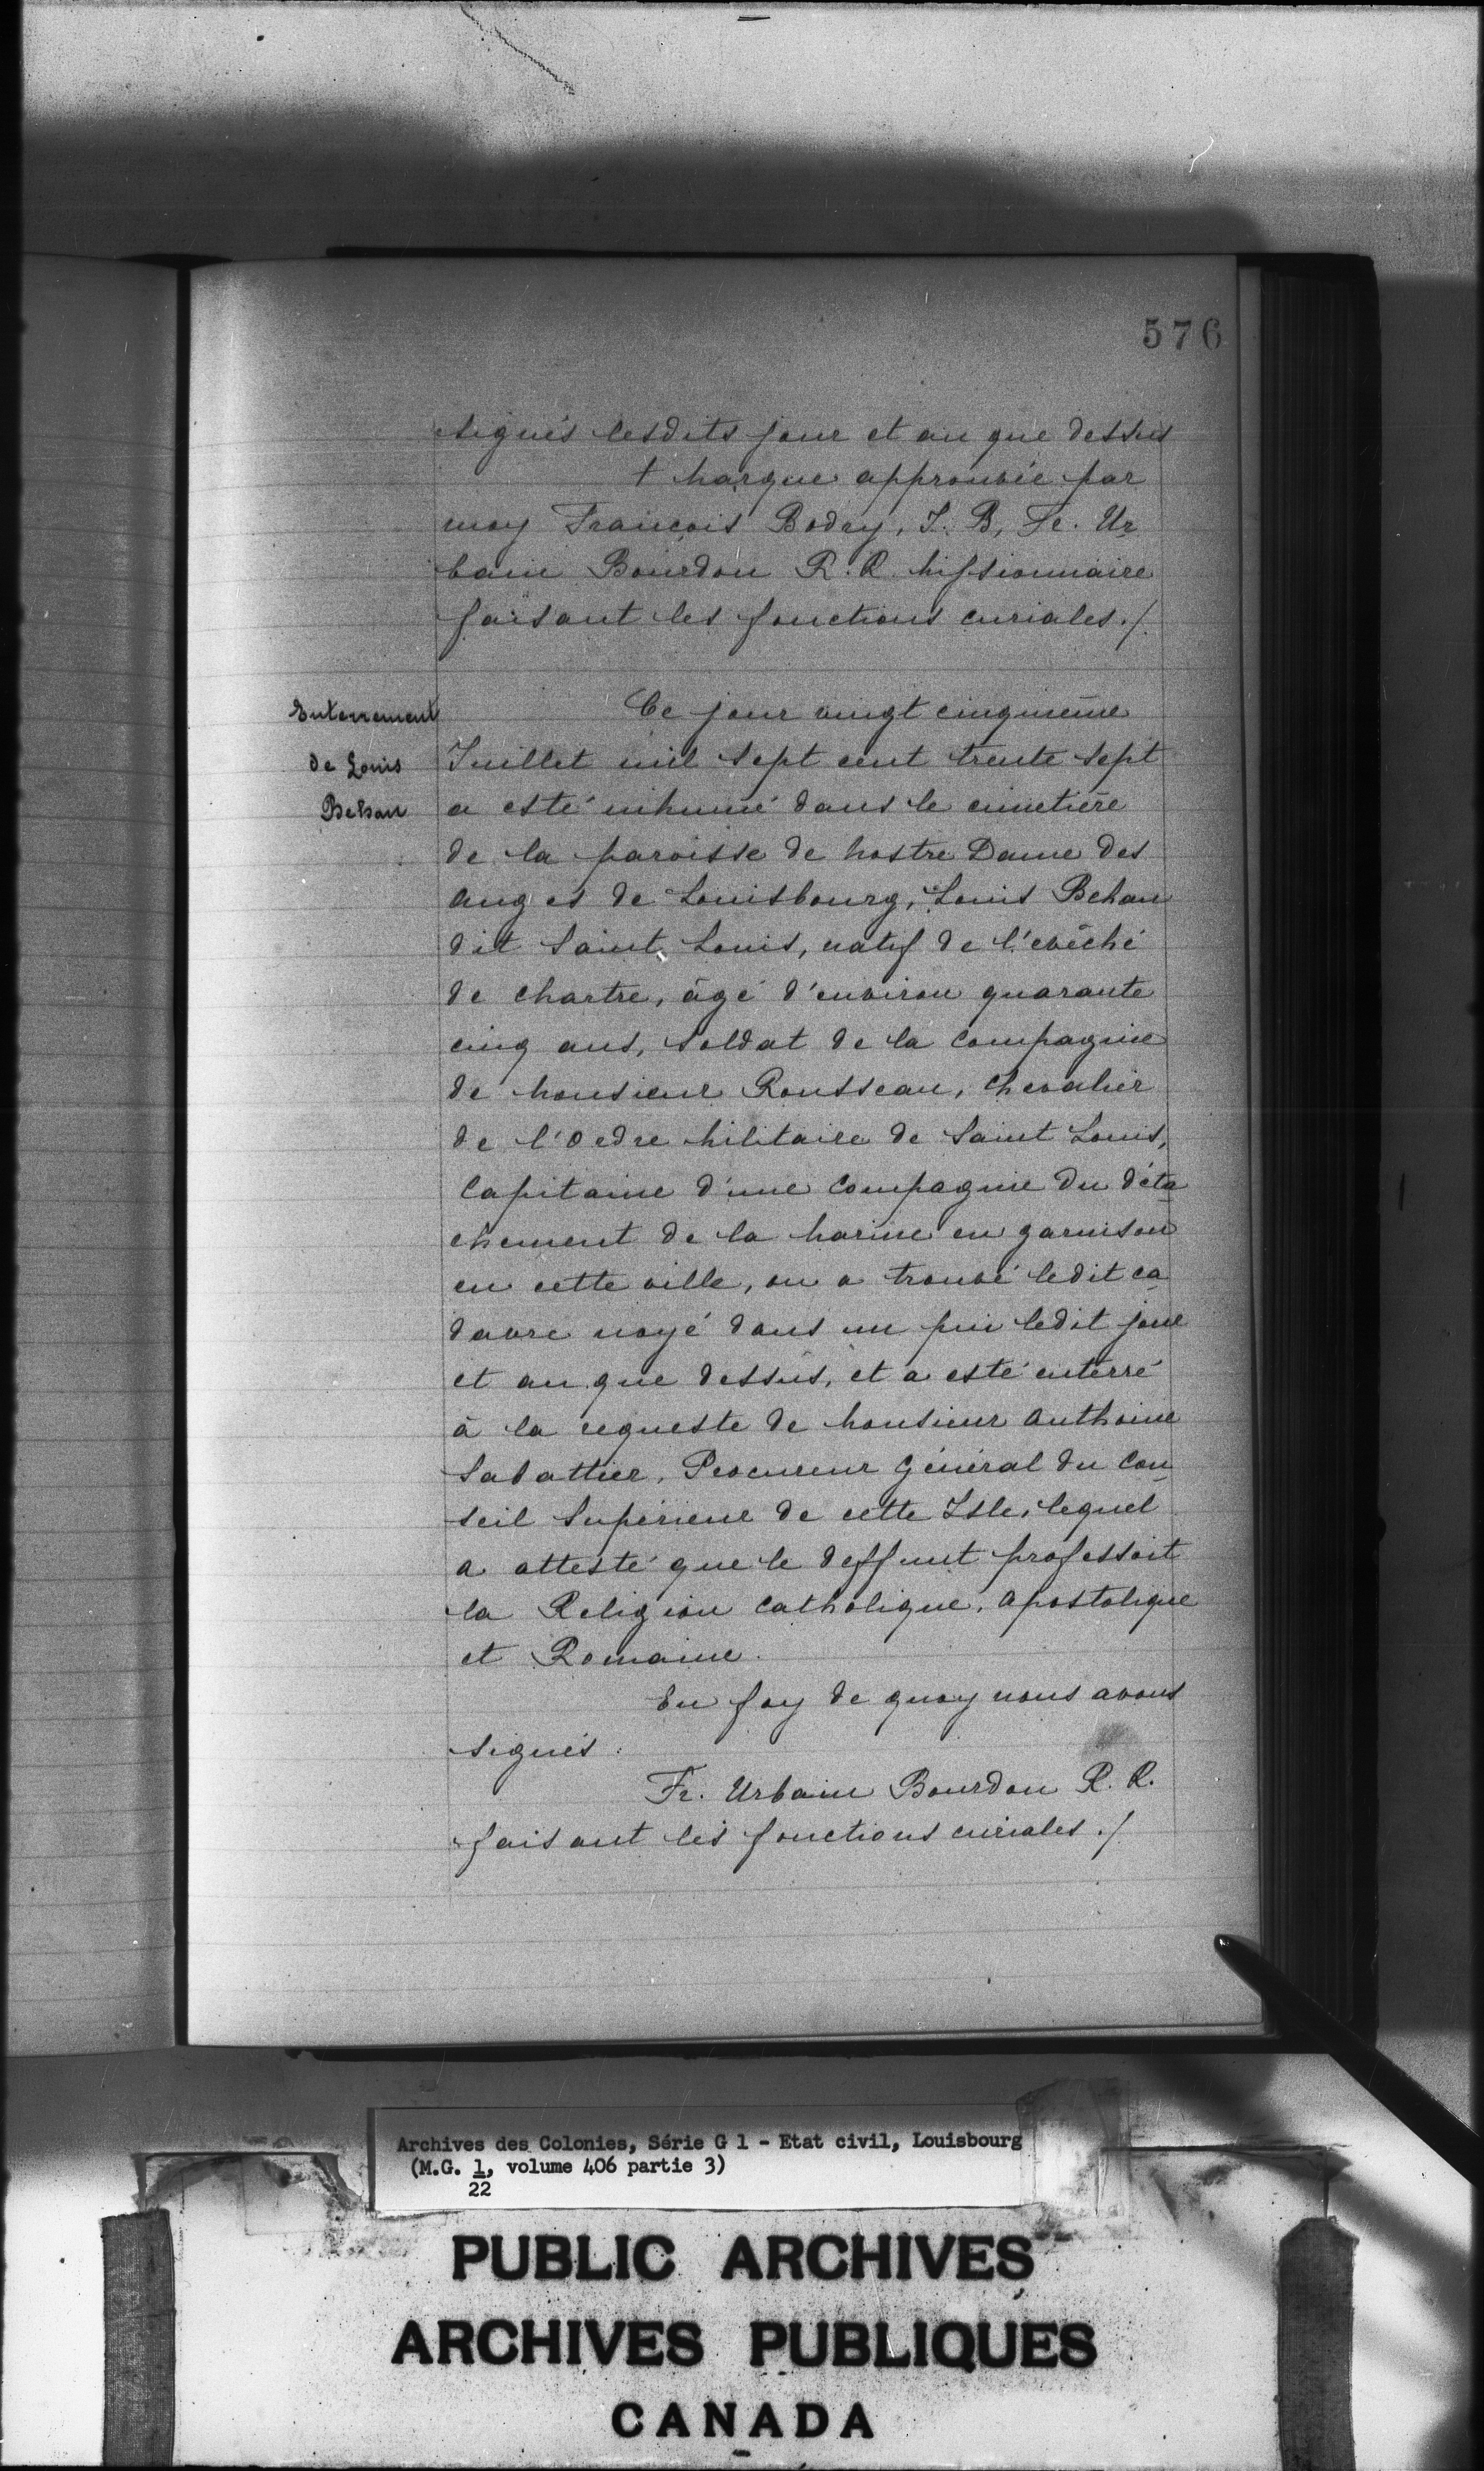 576
signés lesdits jour et an que dessus
† Marque approuvée par
moy François Bodry, J. B, Fr. Ur
bain Bourdon R. R. Missionnaire
faisant les fonctions curiales./.
Enterrement
de Louis
Behan
Ce jour vingt cinquième
Juillet mil sept cent trente sept
a esté inhumé dans le cimetière
de la paroisse de Nostre Dame des
anges de Louisbourg, Louis Behan
dit Saint Louis, natif de l'evêché
de Chartre, âgé d'environ quarante
cinq ans, soldat de la Compagnie
de Monsieur Rousseau, Chevalier
de l'Ordre Militaire de Saint Louis,
Capitaine d'une Compagnie du déta
chement de la Marine en garnison
en cette ville, on a trouvé ledit ca
davre noyé dans un pui ledit jour
et an que dessus, et a esté enterré
à la requeste de Monsieur Anthoine
Sabattier, Procureur Général du Con
seil Supérieur de cette Isle, lequel
a attesté que le deffunt professoit
la Religion Catholique, Apostolique
et Romaine.
En foy de quoy nous avons
signés.
Fr. Urbain Bourdon R. R.
faisant les fonctions curiales./
Archives des Colonies, Série G 1 - Etat civil, Louisbourg
(M.G. 1, volume 406 partie 3)
22
PUBLIC ARCHIVES
ARCHIVES PUBLIQUES
CANADA